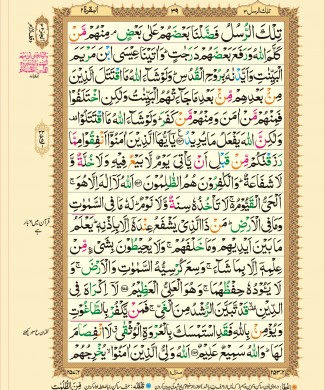 تلك الرسل ٣
٣٩
البقرة ٢
تِلْكَ الرُّسُلُ فَضَّلْنَا بَعْضَهُمْ عَلٰى بَعْضٍ ۘ مِنْهُمْ مَّنْ
كَلَّمَ اللّٰهُ وَرَفَعَ بَعْضَهُمْ دَرَجٰتٍ ؕ وَاٰتَيْنَا عِيْسَى ابْنَ مَرْيَمَ
الْبَيِّنٰتِ وَاَيَّدْنٰهُ بِرُوْحِ الْقُدُسِ ؕ وَلَوْ شَآءَ اللّٰهُ مَا اقْتَتَلَ الَّذِيْنَ
مِنْۢ بَعْدِهِمْ مِّنْۢ بَعْدِ مَا جَآءَتْهُمُ الْبَيِّنٰتُ وَلٰكِنِ اخْتَلَفُوْا
فَمِنْهُمْ مَّنْ اٰمَنَ وَمِنْهُمْ مَّنْ كَفَرَ ؕ وَلَوْ شَآءَ اللّٰهُ مَا اقْتَتَلُوْا ۫
وَلٰكِنَّ اللّٰهَ يَفْعَلُ مَا يُرِيْدُ ۝ يٰۤاَيُّهَا الَّذِيْنَ اٰمَنُوْۤا اَنْفِقُوْا مِمَّا
رَزَقْنٰكُمْ مِّنْ قَبْلِ اَنْ يَّاْتِيَ يَوْمٌ لَّا بَيْعٌ فِيْهِ وَلَا خُلَّةٌ وَّ
لَا شَفَاعَةٌ ؕ وَالْكٰفِرُوْنَ هُمُ الظّٰلِمُوْنَ ۝ اَللّٰهُ لَاۤ اِلٰهَ اِلَّا هُوَ ۚ
اَلْحَيُّ الْقَيُّوْمُ ۚ لَا تَاْخُذُهٗ سِنَةٌ وَّلَا نَوْمٌ ؕ لَهٗ مَا فِي السَّمٰوٰتِ
وَمَا فِي الْاَرْضِ ؕ مَنْ ذَا الَّذِيْ يَشْفَعُ عِنْدَهٗۤ اِلَّا بِاِذْنِهٖ ؕ يَعْلَمُ
مَا بَيْنَ اَيْدِيْهِمْ وَمَا خَلْفَهُمْ ۚ وَلَا يُحِيْطُوْنَ بِشَيْءٍ مِّنْ
عِلْمِهٖۤ اِلَّا بِمَا شَآءَ ۚ وَسِعَ كُرْسِيُّهُ السَّمٰوٰتِ وَالْاَرْضَ ۚ
وَلَا يَـُٔوْدُهٗ حِفْظُهُمَا ۚ وَهُوَ الْعَلِيُّ الْعَظِيْمُ ۝ لَاۤ اِكْرَاهَ فِي
الدِّيْنِ ۙ قَدْ تَّبَيَّنَ الرُّشْدُ مِنَ الْغَيِّ ۚ فَمَنْ يَّكْفُرْ بِالطَّاغُوْتِ
وَيُؤْمِنْۢ بِاللّٰهِ فَقَدِ اسْتَمْسَكَ بِالْعُرْوَةِ الْوُثْقٰى ۗ لَا انْفِصَامَ
لَهَا ؕ وَاللّٰهُ سَمِيْعٌ عَلِيْمٌ ۝ اَللّٰهُ وَلِيُّ الَّذِيْنَ اٰمَنُوْا ۙ يُخْرِجُهُمْ